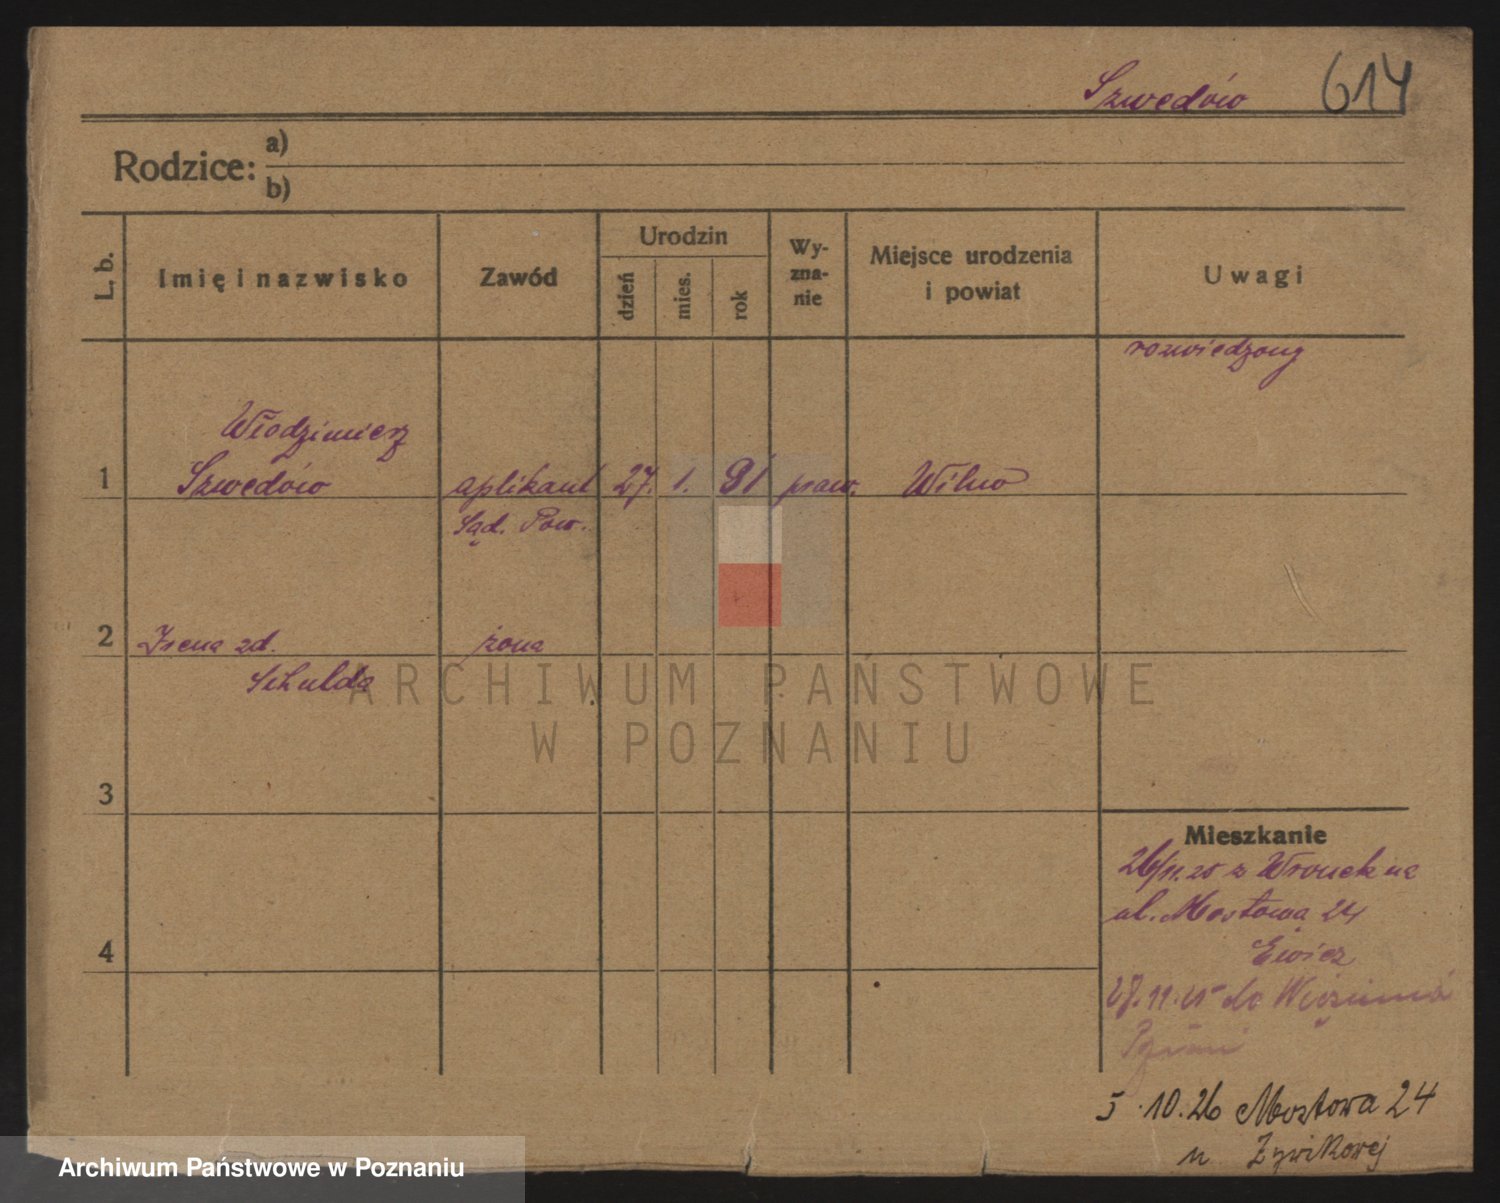 Szwedów 614
Rodzice: a)
b)
L. b.
Imię i nazwisko
Zawód
Urodzin
dzień
mies.
rok
Wy-
zna-
nie
Miejsce urodzenia
i powiat
Uwagi
rozwiedzony
Włodzimierz
1 Szwedów aplikant 27. 1. 91 praw. Wilno
Sąd. Pow.
2 Irena zd. żona
Schulda
ARCHIWUM PAŃSTWOWE
W POZNANIU
3
Mieszkanie
26/11.25 z Wronek na
ul. Mostowa 24
4
27.11.25 do
5.10.26 Mostowa 24
u Żywikowej
Archiwum Państwowe w Poznaniu